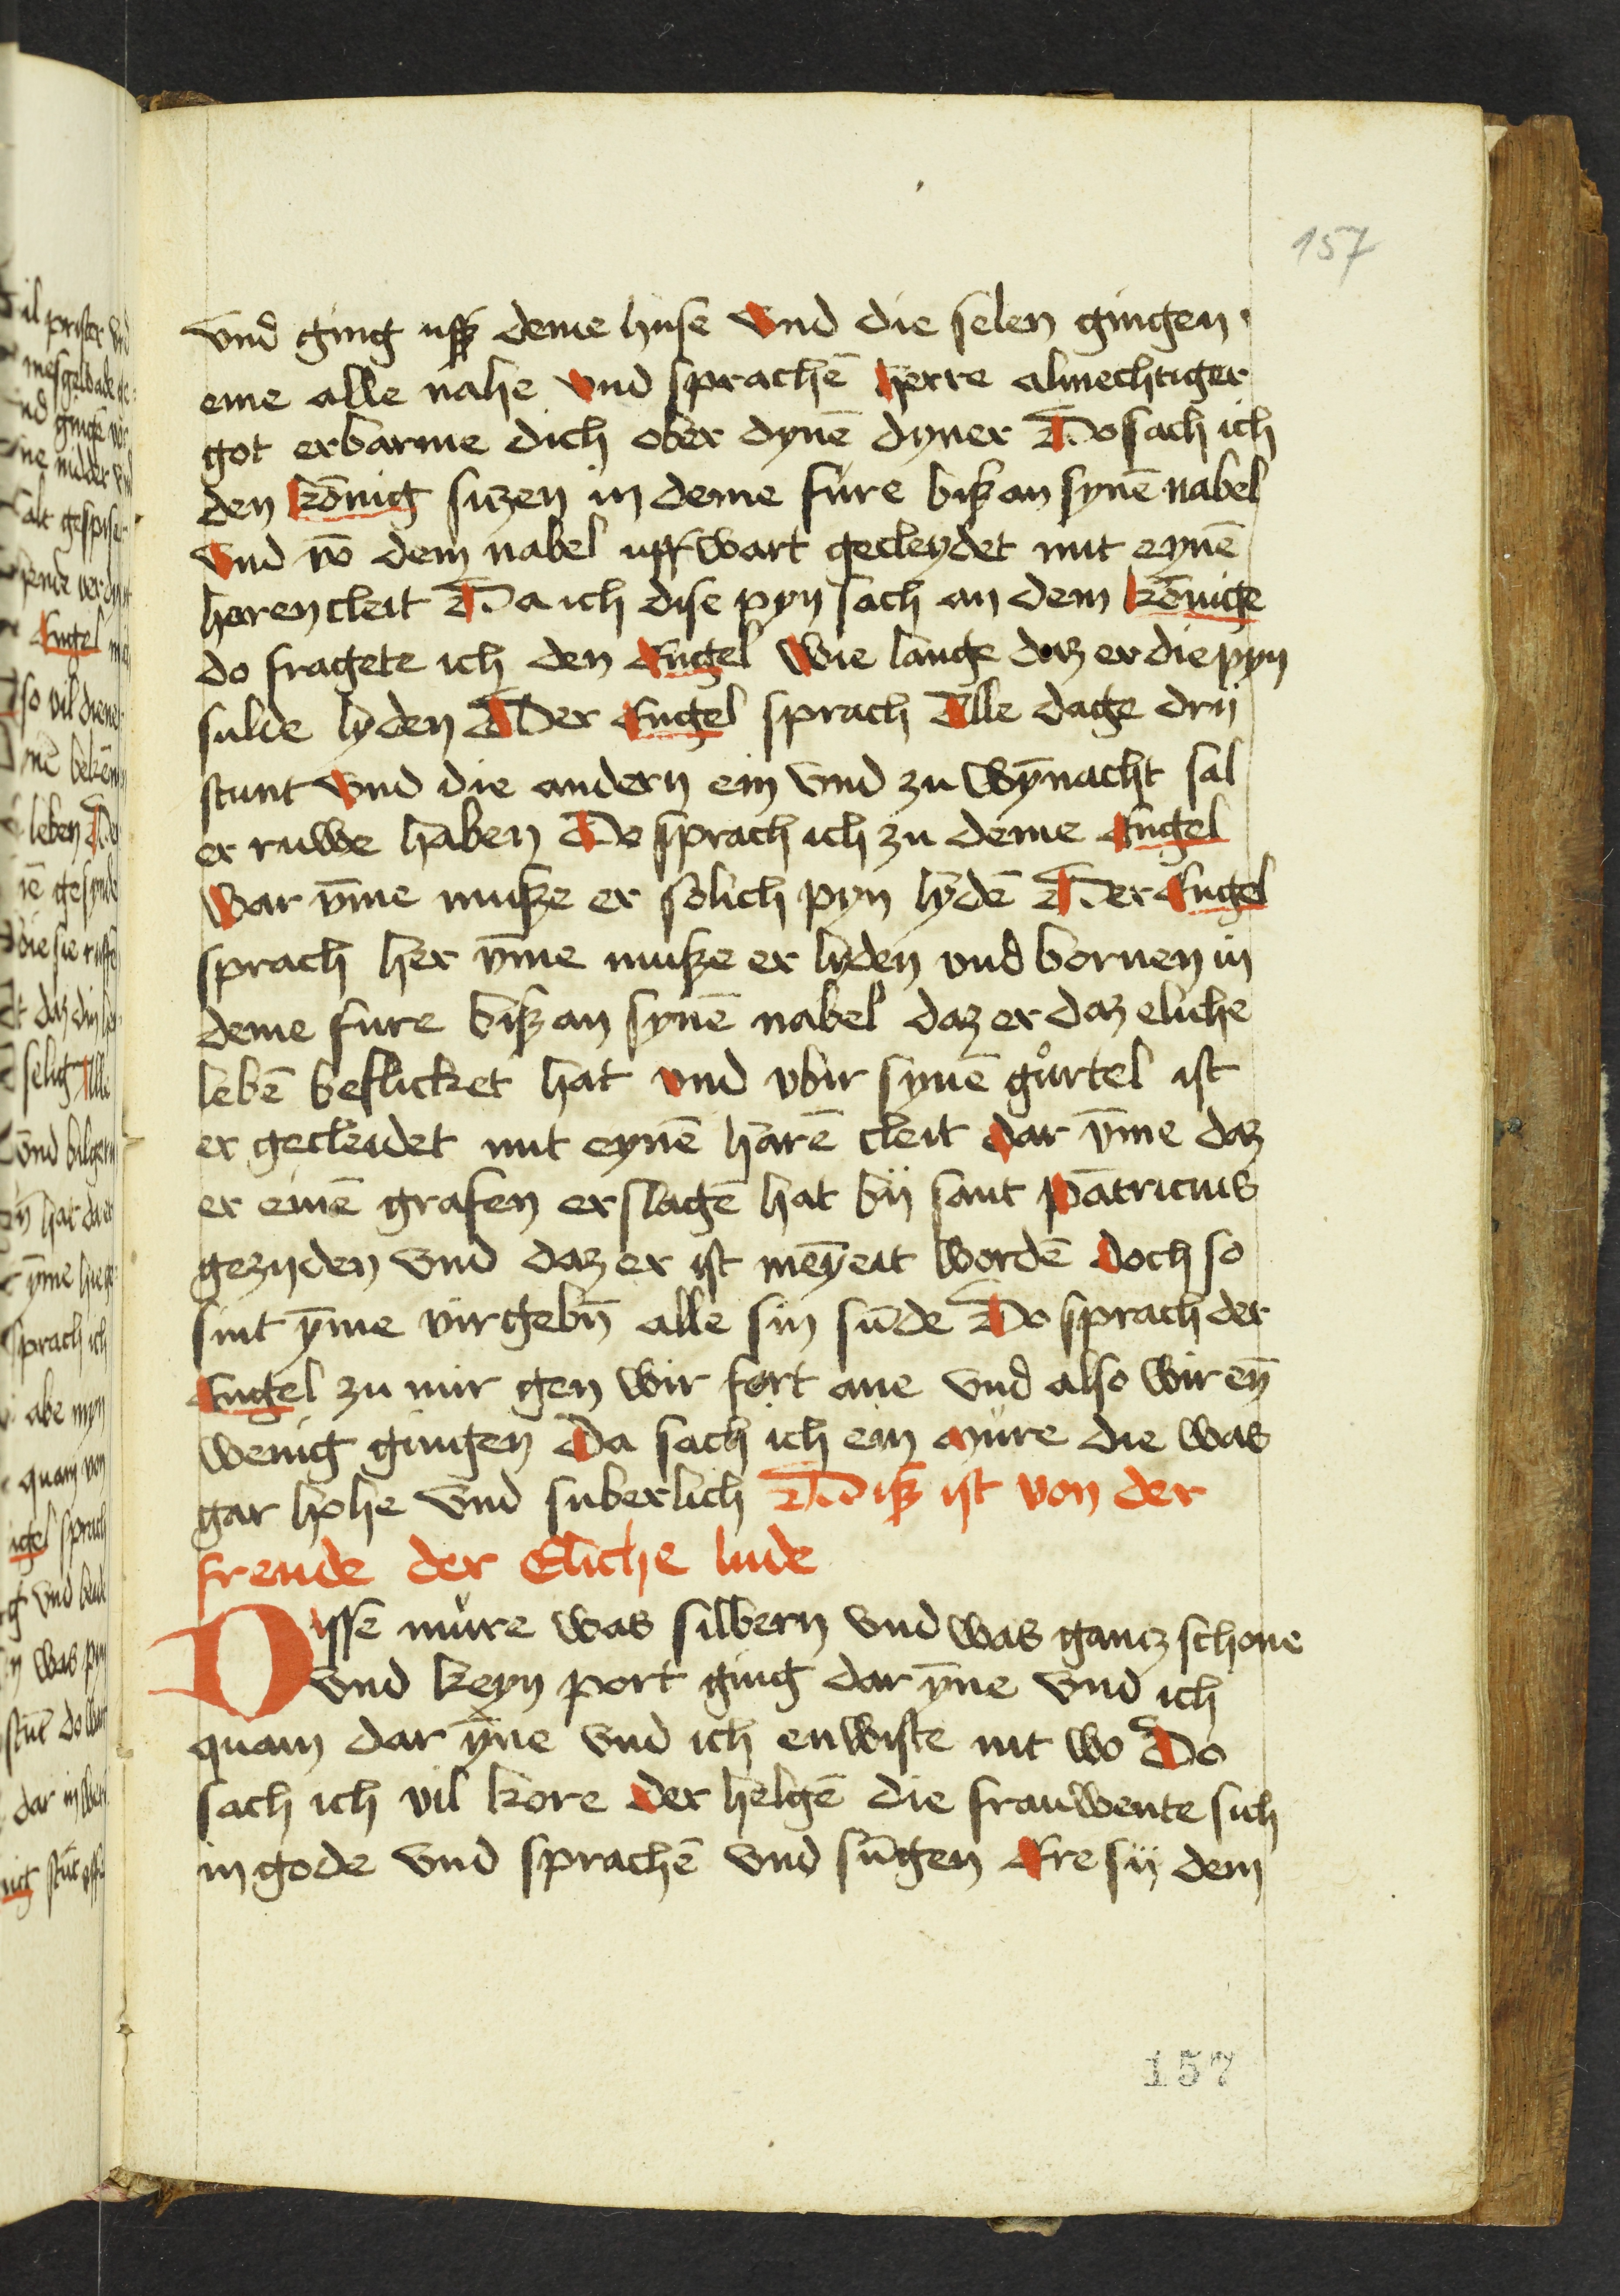 157
vnd ging uß deme huse vnd die selen gingen
eme alle nahe vnd sprachē herre almechtiger
got erbarme dich ober dynē dyner Do sach ich
den kōnig sizen in deme fure biß an synē nabel
vnd vō dem nabel uff wart gecleydet mit eynē
haren cleit Da ich dise pyn sach an dem kōnige
do fragete ich den Engel wie lange daz er die pyn
sulde lyden Der Engel sprach Alle dage drij
stunt vnd die andern ein vnd zu wȳnacht sal
er ruwe haben Do sprach ich zu deme Engel
war v̄me muße er solich pyn lydē Der Engel
sprach her v̄me muße er lyden vnd bornen in
deme fure biß an synē nabel daz er daz eliche
lebē beflicket hat vnd vbir synē gůrtel ist
er gecleidet mit eynē harē cleit dar v̄me daz
er einē grafen erslagē hat bij sant pātricius
gezijden vnd daz er ist meȳeit wordē doch so
sint ȳme virgebn̄ alle sin sūde Do sprach der
Engel zu mir gen wir fort ane vnd also wir eȳ
wenig gingen Da sach ich ein mure die was
gar hohe vnd suberlich Diß ist von der
freude der Eliche lude
Disse můre was silbern vnd was gancz schone
vnd keyn port ging dar ȳne vnd ich
quam dar ȳne vnd ich enwiste nit wo Do
sach ich vil kore der helgē die frauwente sich
in gode vnd sprachē vnd sūgen Ere sij dem
157